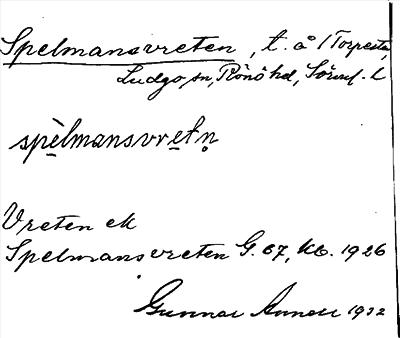 Spelmansvreten, t. å / Torpesta,
Ludgo sn, Rönö hd, Söderml. L
spèlmansvretn
Vreten ek
Spelmansvreten G. 67, Kb. 1926
Gunnar 1932